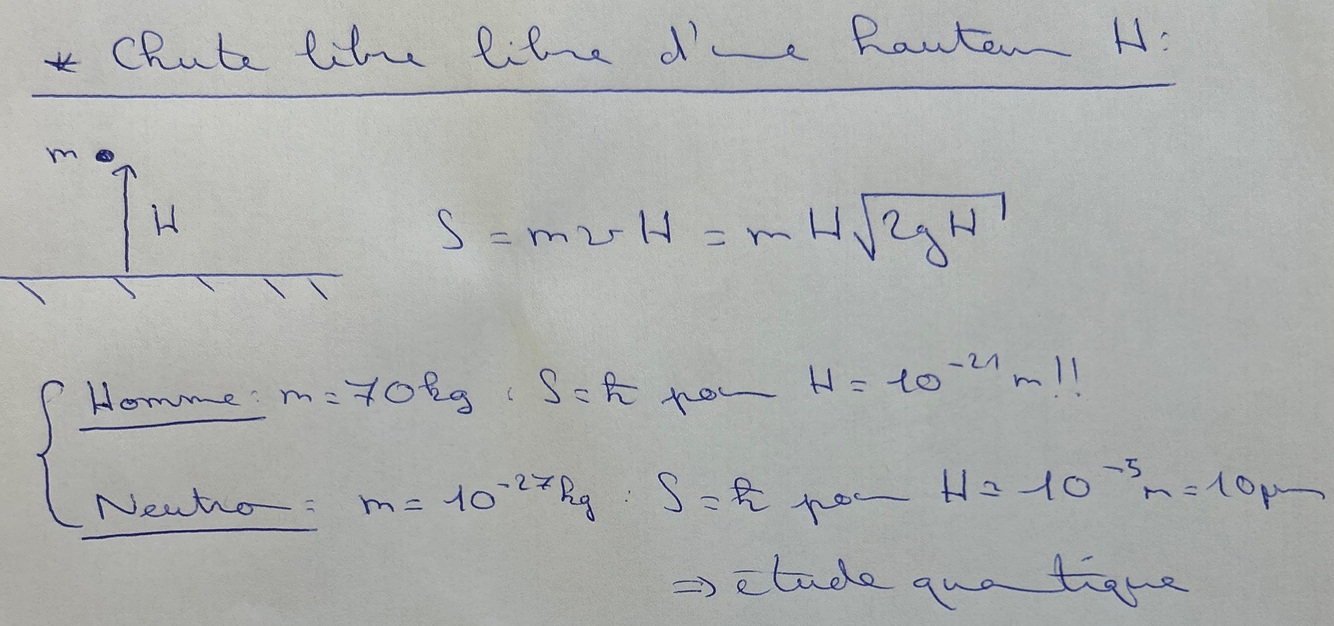 * Chute libre libre d'une hauteur H:
m
H
S = mvH = mH√2gH
Homme: m=70kg : S=ℏ pour H=10⁻²¹m!!
Neutron: m=10⁻²⁷kg : S=ℏ pour H=10⁻⁵m=10μm
⇒ étude quantique